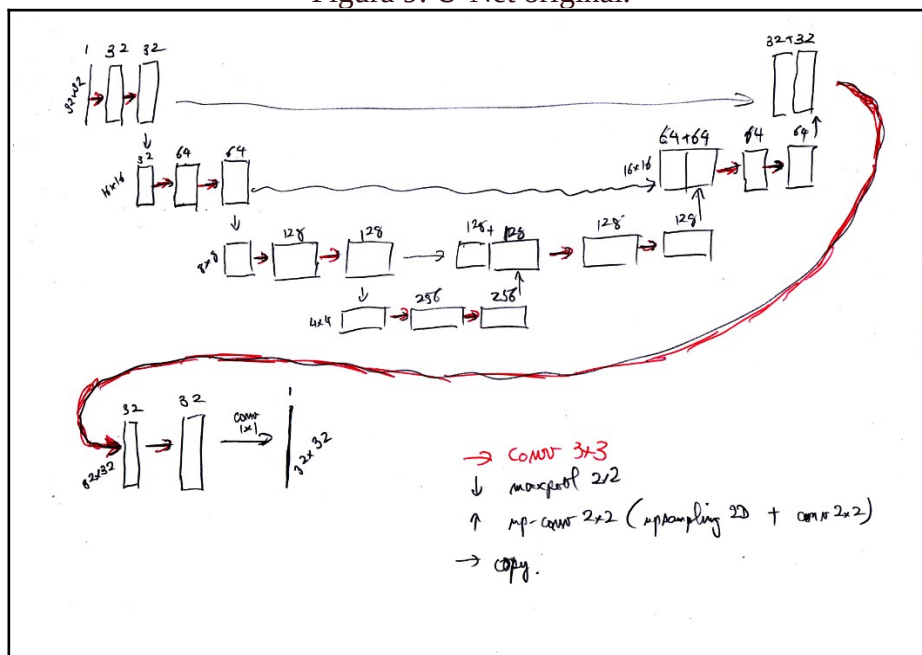 Figura 5: U-Net original.
1 32 32
32x32
32+32
32 64 64
16x16
64+64 64 64
16x16
128 128
8x8
128+ 128 128 128
256 256 256
4x4
32 32 conv 1x1 1
32x32
32x32
→ conv 3x3
↓ maxpool 2x2
↑ up-conv 2x2 (upsampling 2D + conv 2x2)
→ copy.